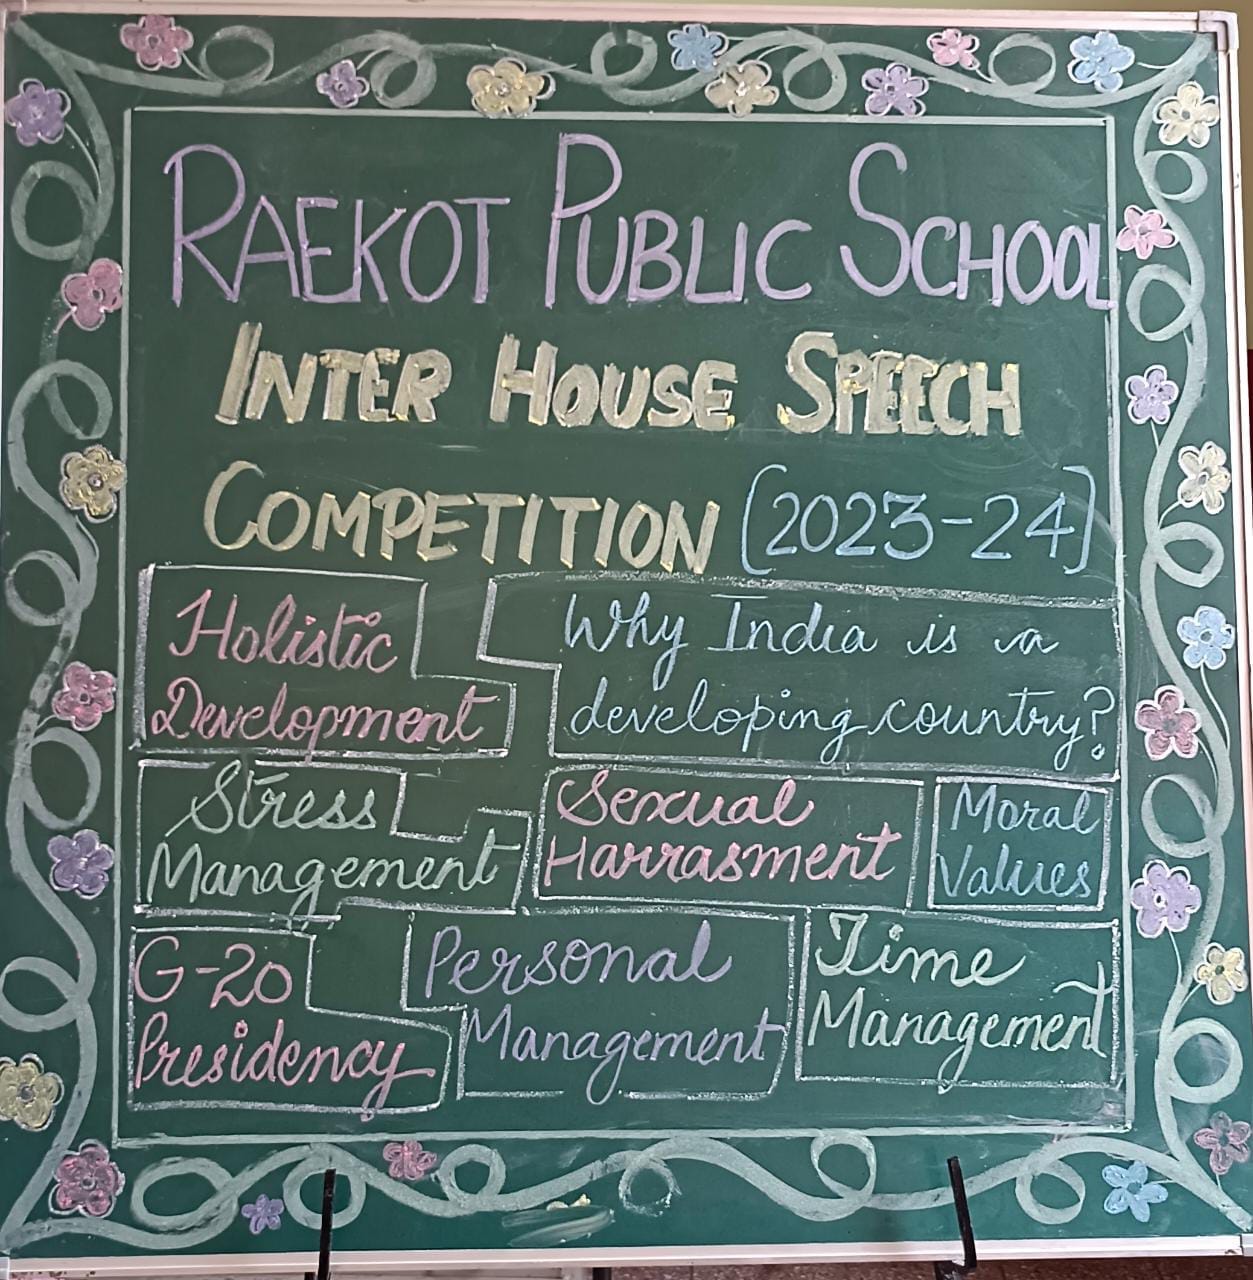 RAEKOT PUBLIC SCHOOL
INTER HOUSE SPEECH
COMPETITION [2023-24]
Holistic
Development
Why India is a
developing country?
Stress
Management
Sexual
Harrasment
Moral
Values
G-20
Presidency
Personal
Management
Time
Management